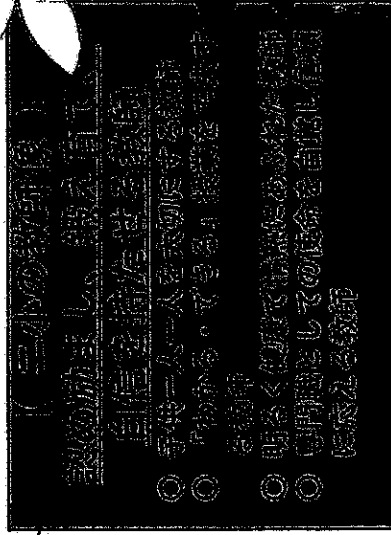 (三小の教師像)
認め励まし、鍛え育て、
自信を持たせる教師
◎児童一人一人を大切にする教師
◎「わかる・できる」授業をめざす
教師
◎明るく健康で情熱にあふれた教師
◎専門職としての使命を自覚し信頼
に応える教師